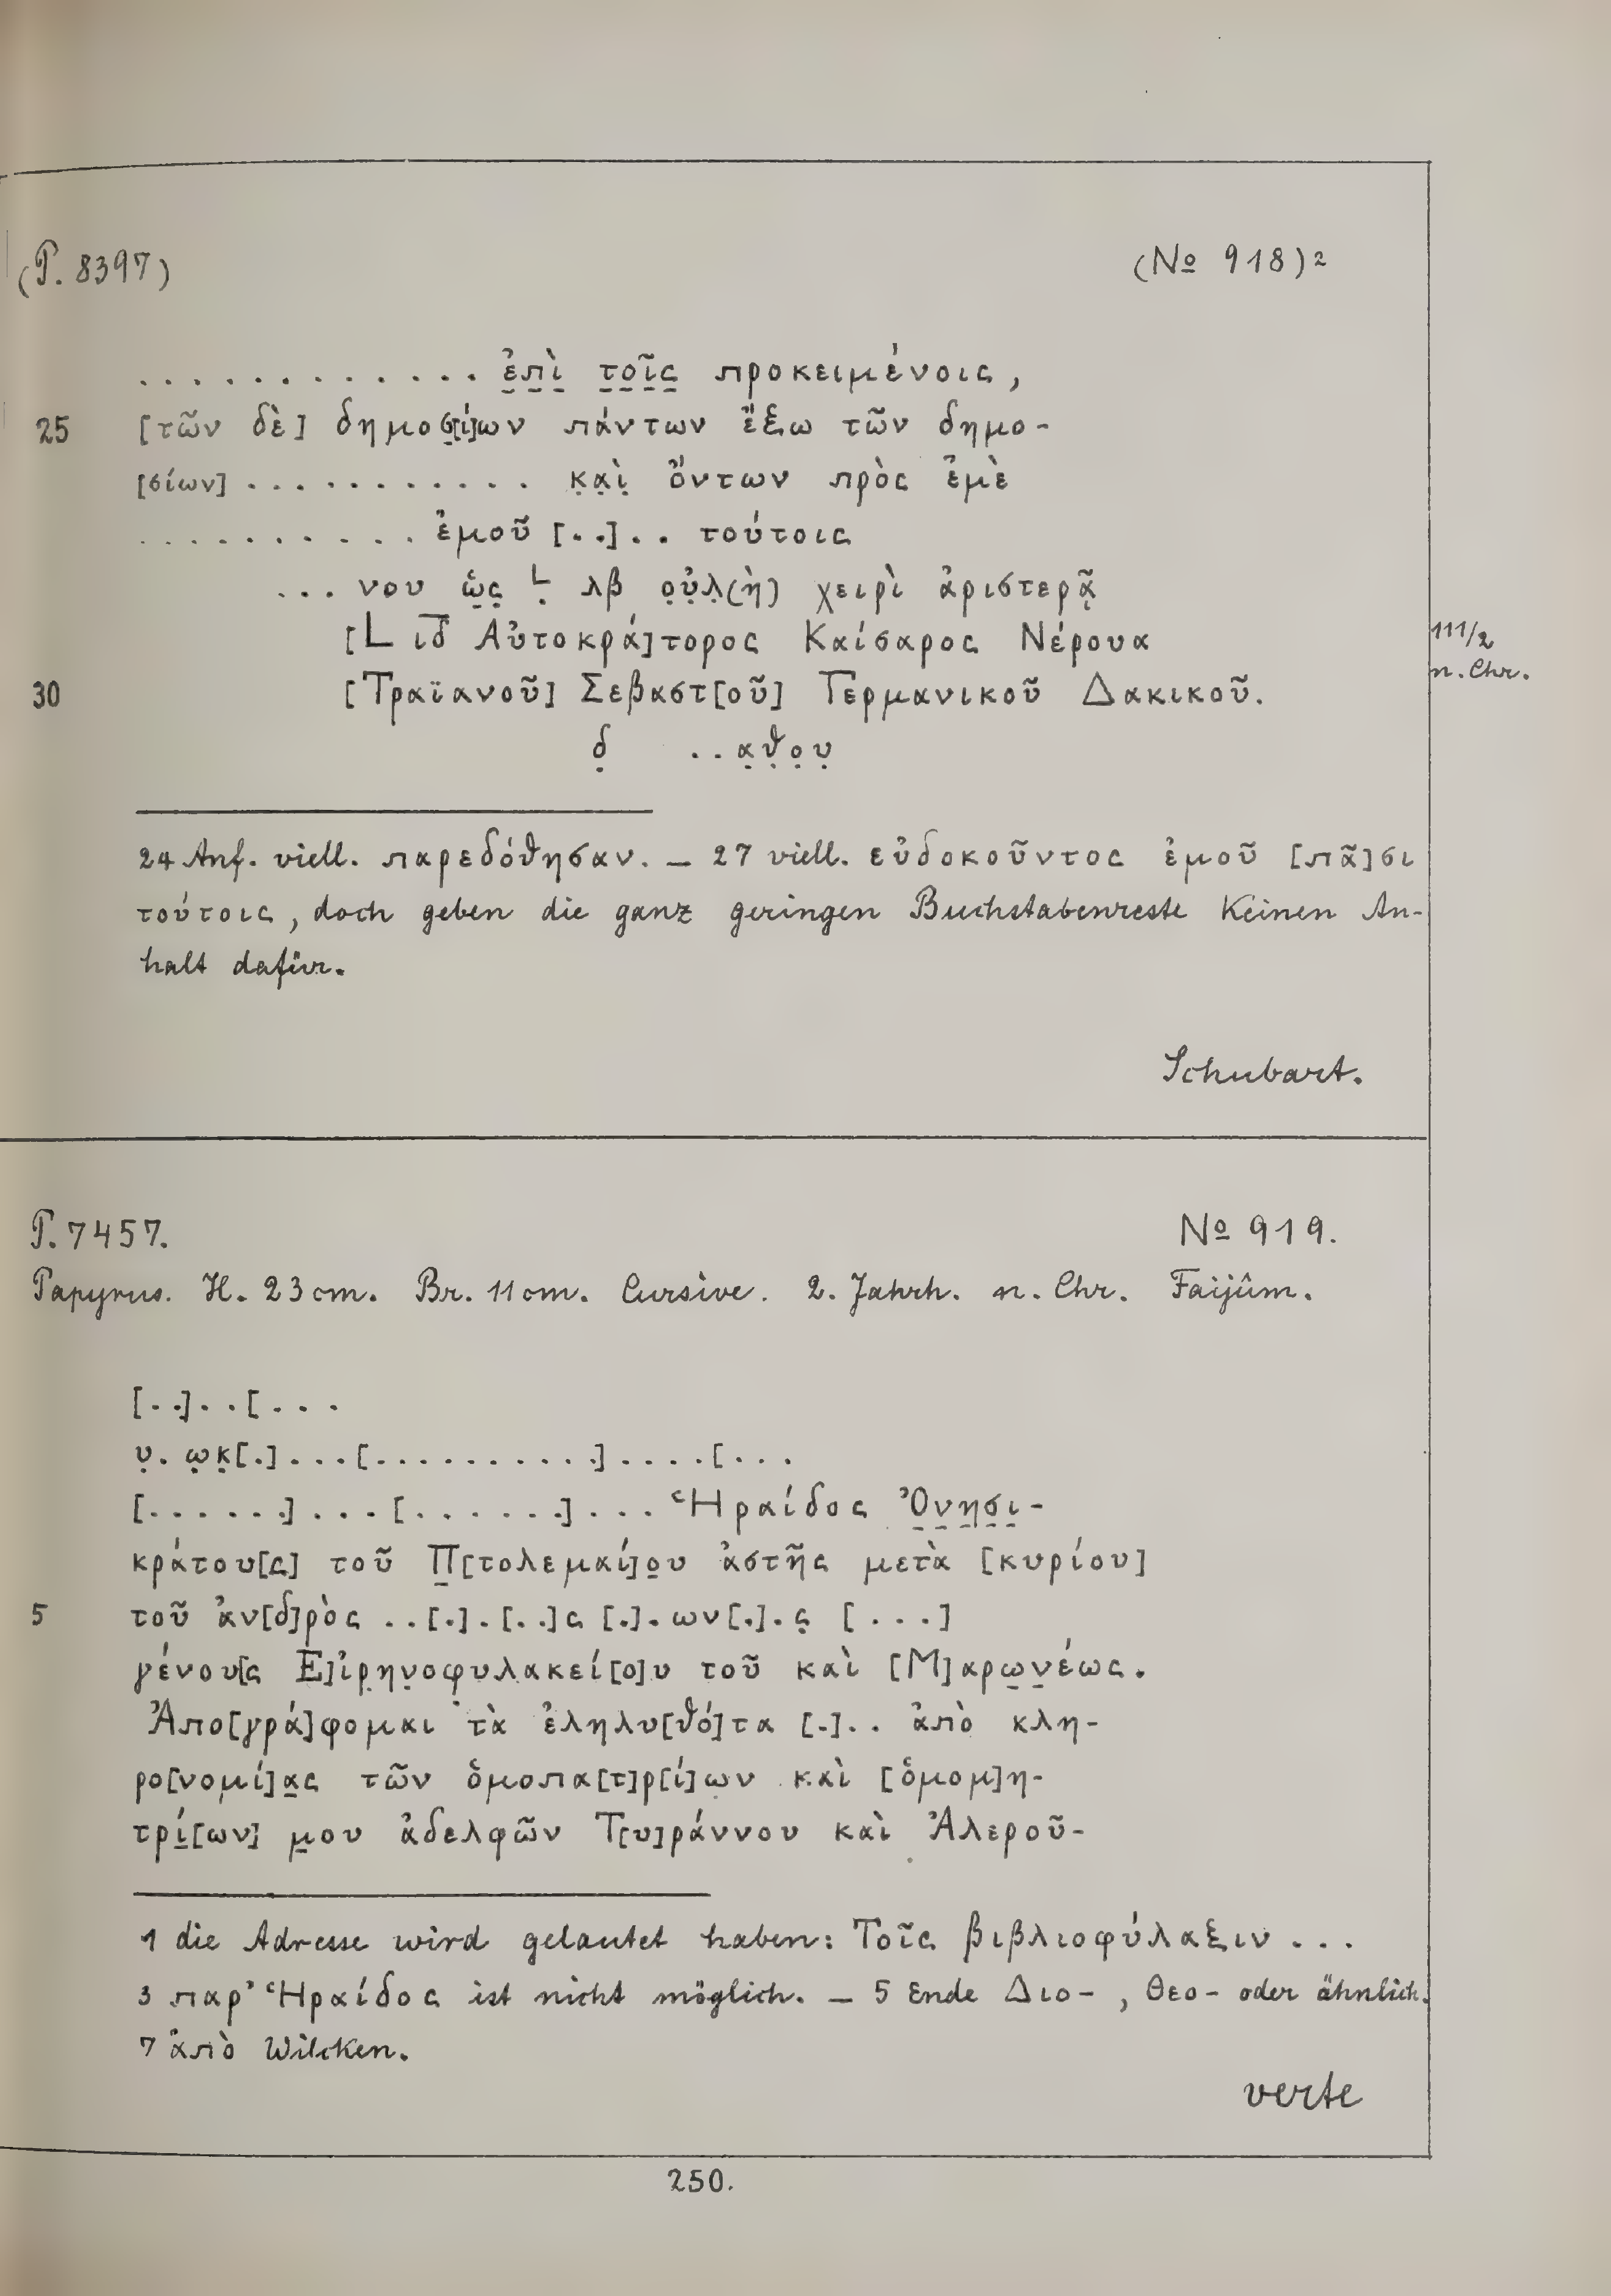 (P. 8397) (No 918)2
. . . . . . . . . . . . . ἐ̣π̣ὶ̣ τ̣ο̣ῖ̣ς̣ προκειμένοις,
25 [τῶν δὲ] δημοσ̣[ί]ων πάντων ἔξω τῶν δημο-
[σίων] . . . . . . . . . . . κ̣α̣ὶ̣ ὄντων πρὸς ἐμὲ
. . . . . . . . . . . ἐμοῦ [. .] . . τούτοις
. . . νου ὡ̣ς̣ Ḷ λβ ο̣ὐ̣λ̣(ὴ) χειρὶ ἀριστερᾷ
[L ιδ̅ Αὐτοκρά]τορος Καίσαρος Νέρουα 111/2
30 [Τραϊανοῦ] Σεβαστ[οῦ] Γερμανικοῦ Δακικοῦ. n. Chr.
δ̣ . . α̣θ̣ο̣υ̣
24 Anf. viell. παρεδόθησαν. — 27 viell. εὐδοκοῦντος ἐμοῦ [πᾶ]σι
τούτοις, doch geben die ganz geringen Buchstabenreste Keinen An-
halt dafür.
Schubart.
P. 7457. No 919.
Papyrus. H. 23 cm. Br. 11 cm. Cursive. 2. Jahrh. n. Chr. Faijûm.
[. .] . . [. . .
υ̣ . ω̣κ̣[.] . . . [. . . . . . . . . . .] . . . . [. . .
[. . . . . .] . . . [. . . . . . .] . . . Ἡραίδος Ὀ̣ν̣η̣σ̣ι̣-
κράτου[ς] τοῦ Π̣[τολεμαί]ο̣υ ἀστῆς μετὰ [κυρίου]
5 τοῦ ἀν[δ]ρὸς . . [.] . [. .]ς [.] . ων[.] . ς̣ [. . .]
γένου[ς Ε]ἰρ̣ην̣οφ̣υλακεί[ο]υ τοῦ καὶ [Μ]αρω̣ν̣έως.
Ἀπο[γρά]φομαι τὰ ἐληλυ[θό]τα [.] . . ἀπὸ κλη-
ρο[νομί]α̣ς τῶν ὁμοπα[τ]ρ[ί]ων καὶ [ὁμομ]η-
τρί̣[ων] μ̣ου ἀδελφῶν Τ[υ]ράννου καὶ Ἀλεροῦ-
1 die Adresse wird gelautet haben: Τοῖς βιβλιοφύλαξιν . . .
3 παρ' Ἡραίδος ist nicht möglich. — 5 Ende Διο-, Θεο- oder ähnlich.
7 ἀπὸ Wilcken.
verte
250.